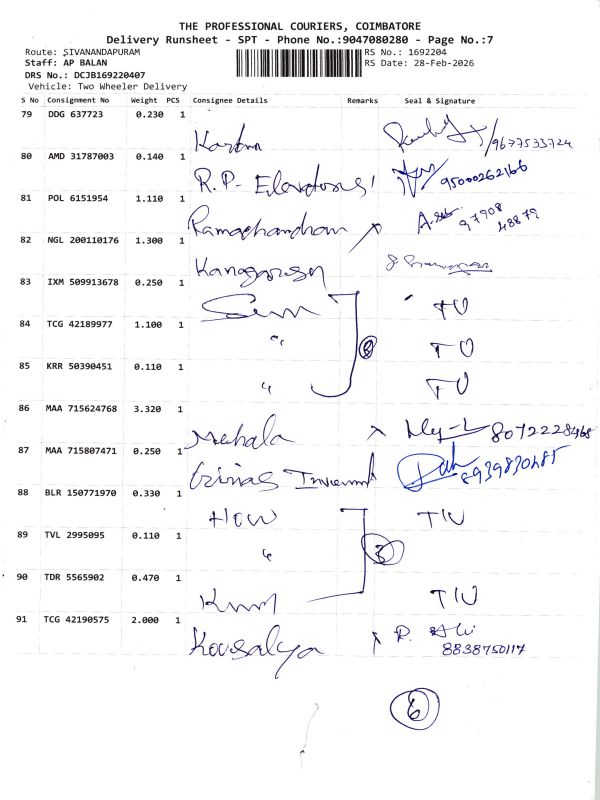 THE PROFESSIONAL COURIERS, COIMBATORE
Delivery Runsheet - SPT - Phone No.:9047080280 - Page No.:7
Route: SIVANANDAPURAM RS No.: 1692204
Staff: AP BALAN RS Date: 28-Feb-2026
DRS No.: DCJB169220407
Vehicle: Two Wheeler Delivery
S No Consignment No Weight PCS Consignee Details Remarks Seal & Signature
79 DDG 637723 0.230 1
9677533724
80 AMD 31787003 0.140 1
R.P. Elevators 95000262166
81 POL 6151954 1.110 1
Ramachandran 97908
48879
82 NGL 200110176 1.300 1
83 IXM 509913678 0.250 1
TU
84 TCG 42189977 1.100 1
" TU
85 KRR 50390451 0.110 1
" TU
86 MAA 715624768 3.320 1
Mehala 8072228468
87 MAA 715807471 0.250 1
8939830485
88 BLR 150771970 0.330 1
TU
89 TVL 2995095 0.110 1
" 3
90 TDR 5565902 0.470 1
TU
91 TCG 42190575 2.000 1
Kousalya
8838750117
6